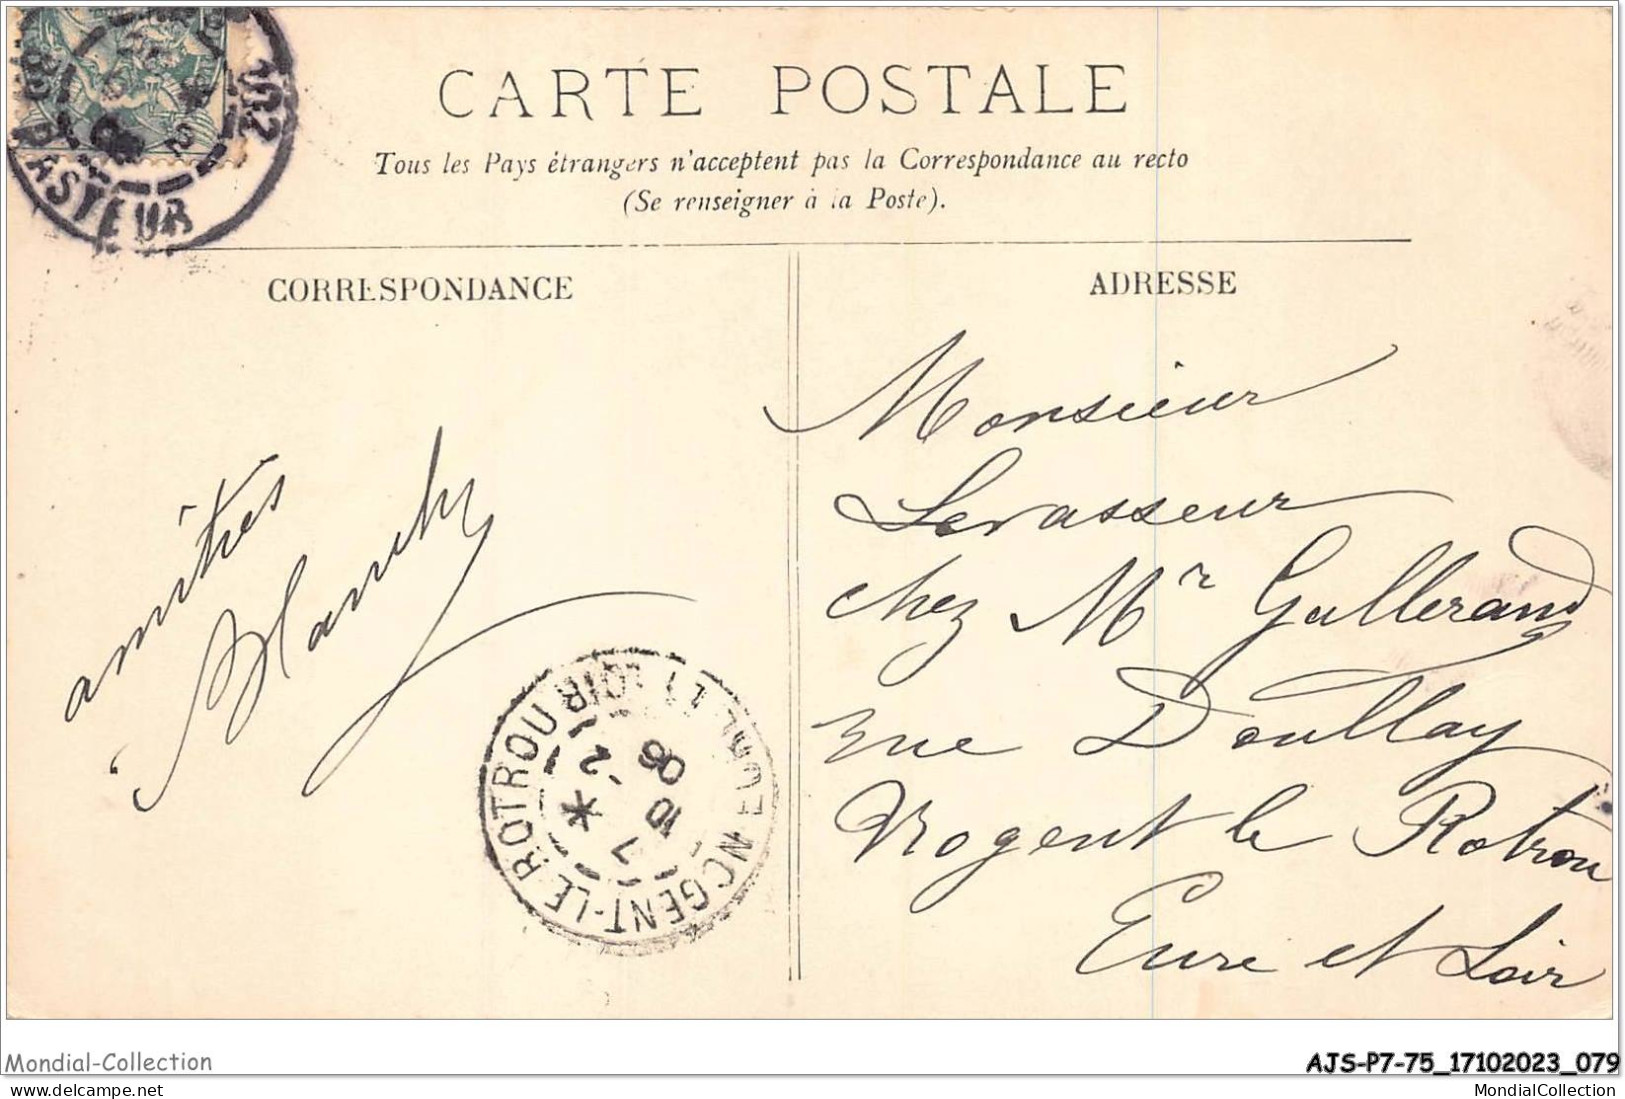 102
PASTEUR
CARTE POSTALE
Tous les Pays étrangers n'acceptent pas la Correspondance au recto
(Se renseigner à la Poste).
CORRESPONDANCE
amitiés
ADRESSE
Monsieur
Levasseur
chez Mr Gallerand
rue Doullay
Nogent le Rotrou
Eure et Loir
NOGENT-LE-ROTROU
10
-2
06
Mondial-Collection
AJS-P7-75_17102023_079
https://www.delcampe.net
MondialCollection